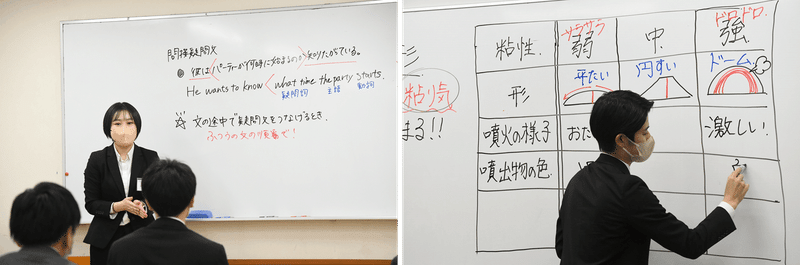 間接疑問文
◎ 彼はパーティーが何時に始まるのか知りたがっている。
He wants to know what time the party starts.
疑問詞 主語 動詞
☆ 文の途中で疑問文をつなげるとき、
ふつうの文の順番で!
形
粘り気
まる!!
粘性 サラサラ 弱 中 ドロドロ 強
形 平たい 円すい ドーム
噴火の様子 おだ 激しい
噴出物の色